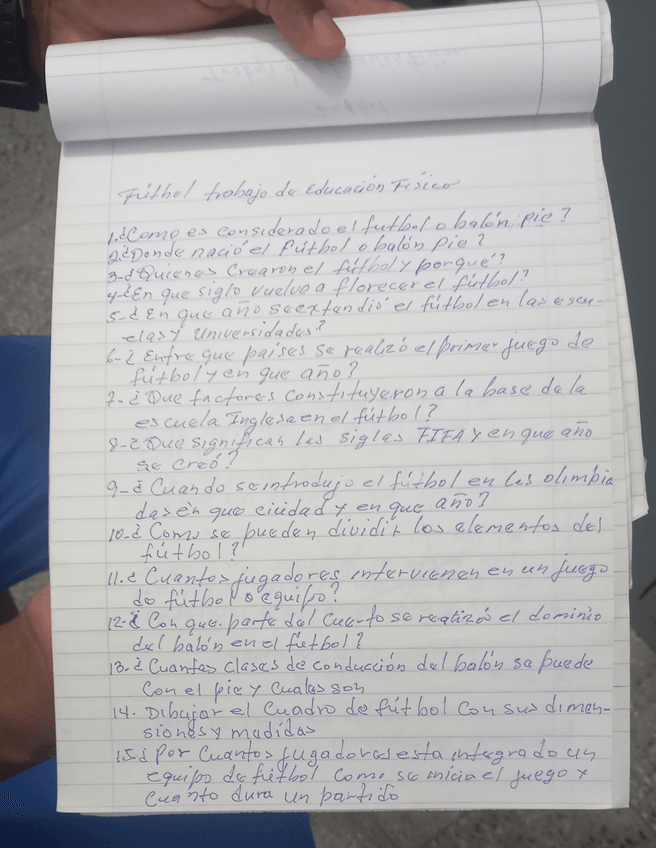 Fútbol trabajo de Educación Físico
1.¿Como es considerado el futbol o balón pie?
2¿Donde nació el Fútbol o balón Pie?
3-¿Quienes Crearon el fútbol y porqué?
4-¿En que siglo vuelve a florecer el fútbol?
5-¿En que año se extendió el fútbol en las escu-
elas y Universidades?
6-¿Entre que países se realizó el primer juego de
fútbol y en que año?
7-¿Que factores Constituyeron a la base de la
escuela Inglesa en el fútbol?
8-¿Que significan las siglas FIFA y en que año
se creó?
9-¿Cuando se introdujo el fútbol en las olimpia
das en que ciudad y en que año?
10.¿Como se pueden dividir los elementos del
fútbol?
11.¿Cuantos jugadores intervienen en un juego
de fútbol o equipo?
12-¿Con que parte del Cuerto se realizó el dominio
del balón en el futbol?
13.¿Cuantas clases de conducción del balón se puede
Con el pie y Cuales son
14. Dibujar el Cuadro de fútbol con sus dimen-
siones y medidas
15.¿Por Cuantos jugadores esta integrado un
equipo de fútbol Como se inicia el juego y
Cuanto dura un partido